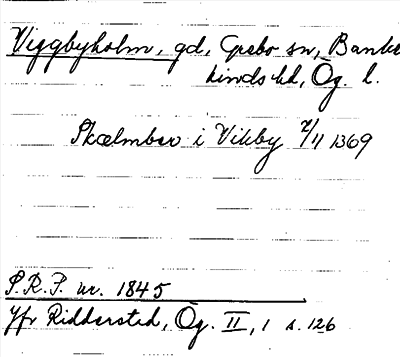 Viggbyholm, gd, Grebo sn, Banke
kinds hd, Ög. l.
Skælmber i Vikby 2/11 1369
S.R.P. nr. 1845
Jfr Ridderstad, Ög. II, 1 s. 126